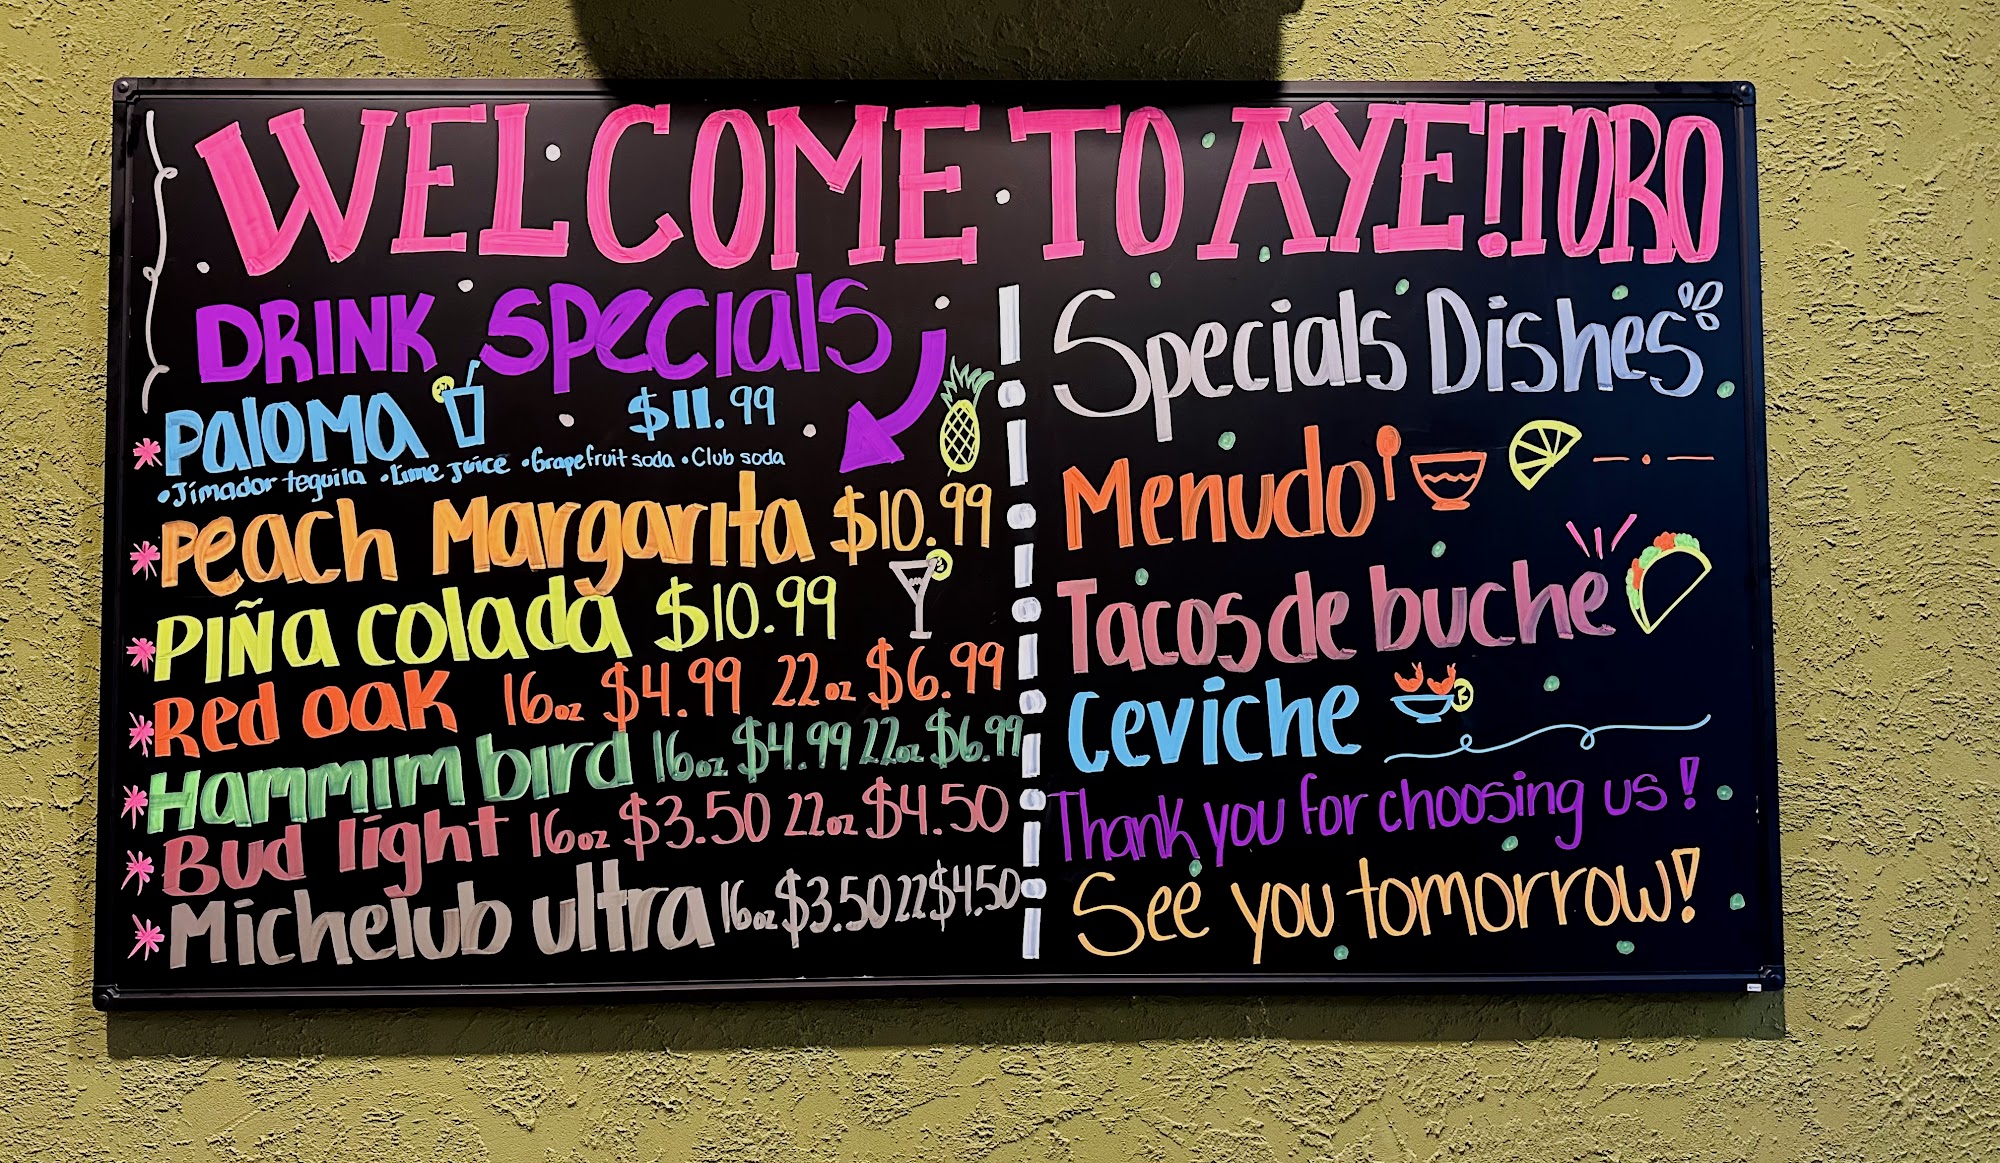 WELCOME TO AYE!TORO
DRINK Specials
Paloma $11.99
•Jimador tequila •Lime juice •Grapefruit soda •Club soda
Peach Margarita $10.99
Piña colada $10.99
Red oak 16oz $4.99 22oz $6.99
Hammim bird 16oz $4.99 22oz $6.99
Bud light 16oz $3.50 22oz $4.50
Michelub ultra 16oz $3.50 22 $4.50
Specials Dishes
Menudo
Tacos de buche
Ceviche
Thank you for choosing us!
See you tomorrow!